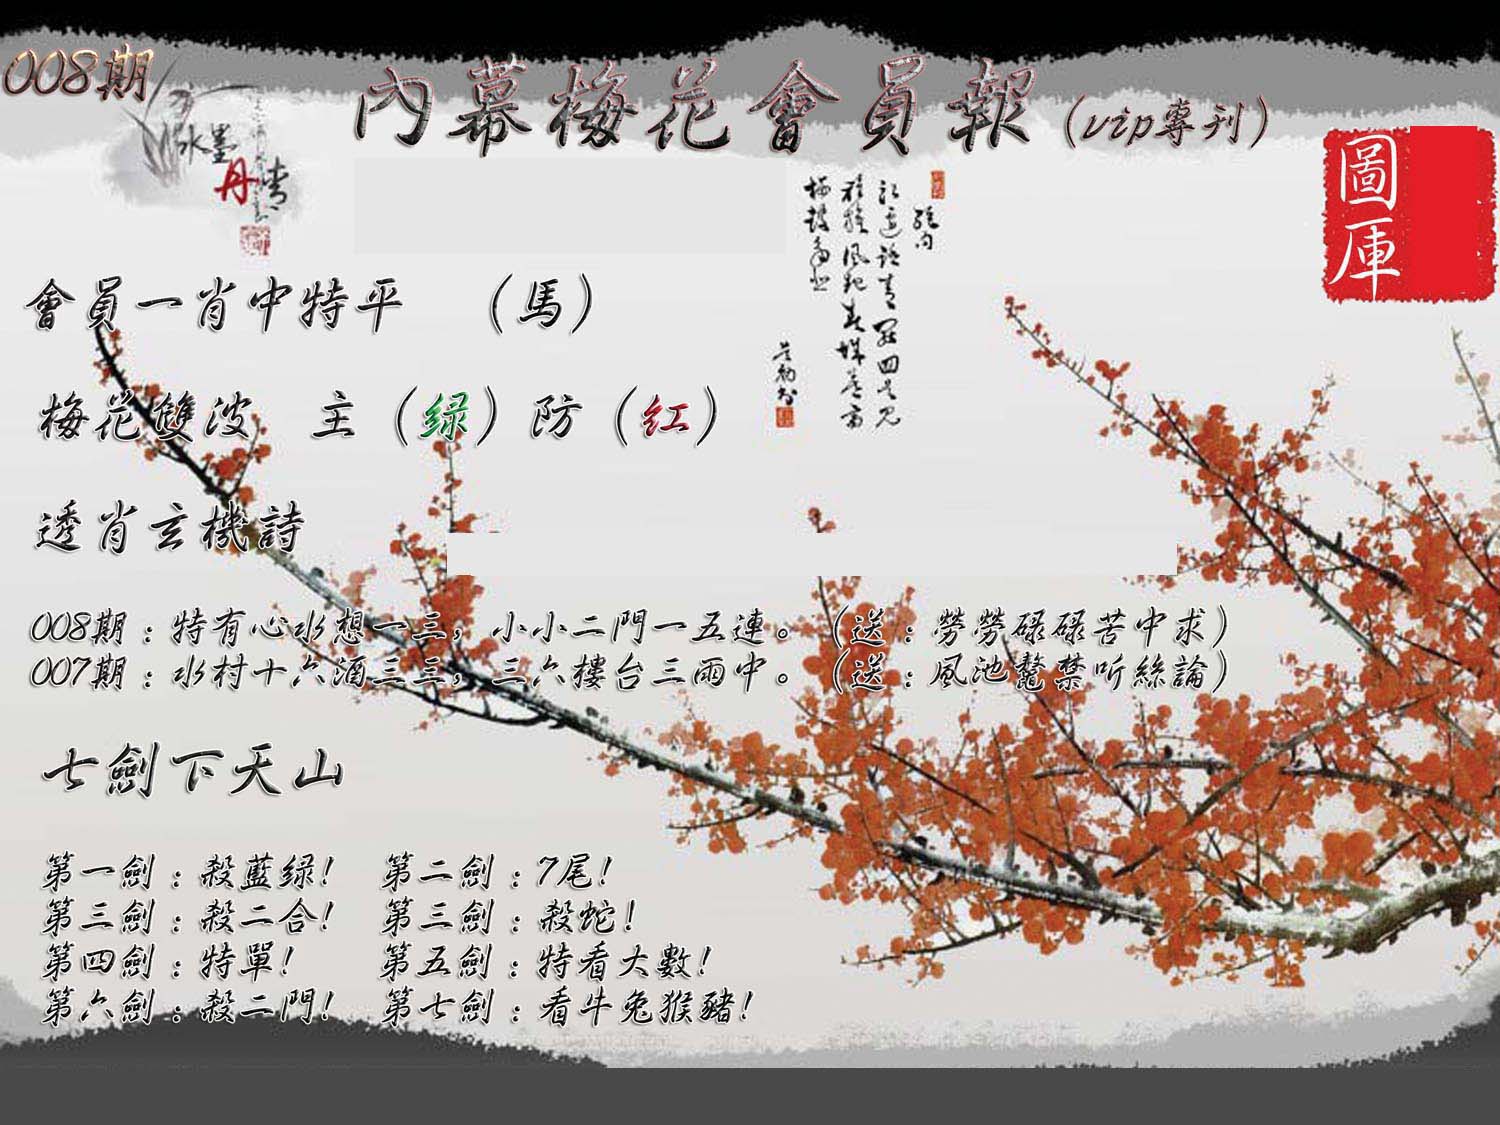 008期
內幕梅花會員報(vip專刊)
水墨
丹青
圖
库
會員一肖中特平 （馬）
梅花雙波 主（绿）防（红）
透肖玄機詩
008期：特有心水想一三，小小二門一五連。（送：勞勞碌碌苦中求）
007期：水村十六酒三三，三六樓台三雨中。（送：風池鼇禁听絲論）
七劍下天山
第一劍：殺藍绿！ 第二劍：7尾！
第三劍：殺二合！ 第三劍：殺蛇！
第四劍：特單！ 第五劍：特看大數！
第六劍：殺二門！ 第七劍：看牛兔猴豬！